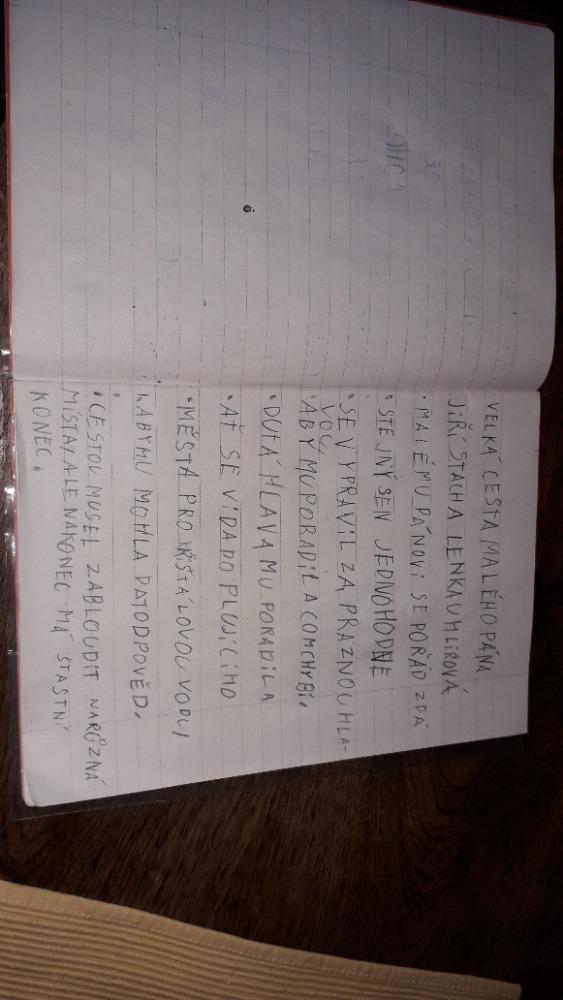 VELKÁ CESTA MALÉHO PÁNA
JIŘÍ STACH A LENKA UHLÍŘOVÁ
• MALÉMU PÁNOVI SE POŘÁD ZDÁ
• STEJNÝ SEN JEDNOHODNE
• SE VYPRAVIL ZA PRAZNOU HLA-
VOU
• ABY MU PORADILA CO MCHYBÍ.
• DUTÁ HLAVA MU PORADILA
• AŤ SE VIDA DO PLUJÍCÍHO
• MĚSTA PRO KŘIŠŤÁLOVOU VODU,
• ABY MU MOHLA DAT ODPOVĚD.
• CESTOU MUSEL ZABLOUDIT NARŮZNÁ
MÍSTA, ALE NAKONEC MÁ ŠTASTNÍ
KONEC.